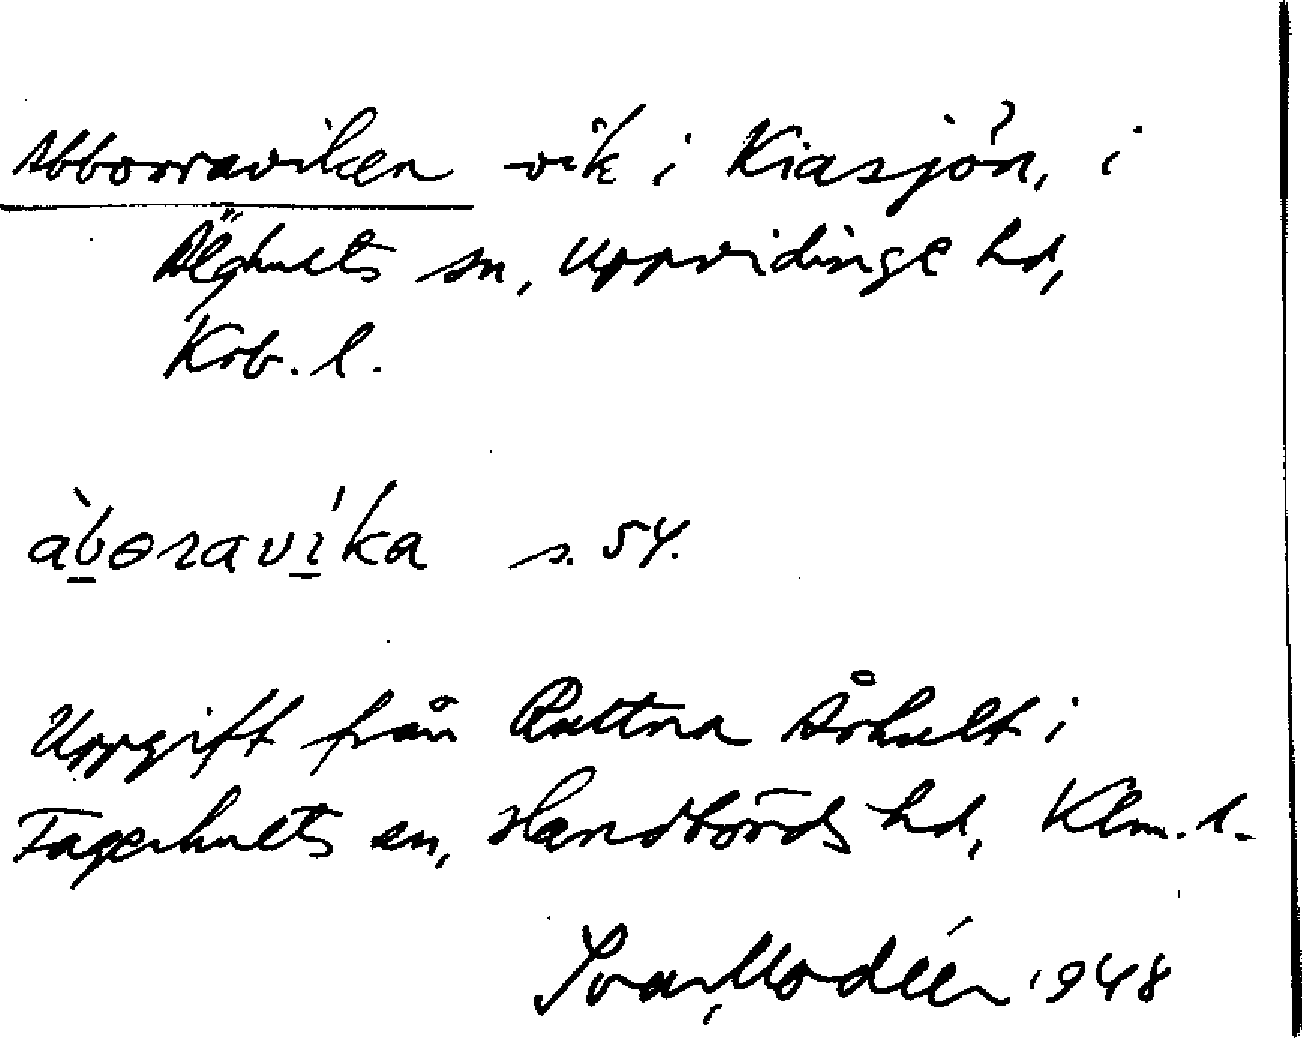 Abborraviken vik i Kiasjön, i
Älghults sn, Uppvidinge hd,
Krb. l.
àbɵravíka s. 54.
Uppgift från Ruttna Århult i
Fagerhults sn, Handbörds hd, Klm. l.
Ivar Modéer 1948